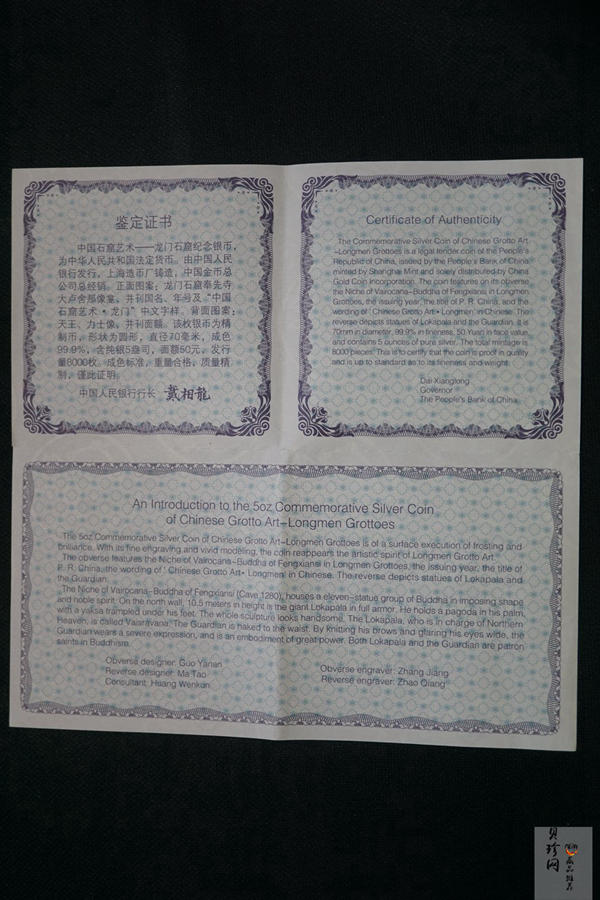 鉴定证书
中国石窟艺术——龙门石窟纪念银币，
为中华人民共和国法定货币。由中国人民
银行发行，上海造币厂铸造，中国金币总
公司总经销。正面图案：龙门石窟奉先寺
大卢舍那像龛，并刊国名、年号及“中国
石窟艺术·龙门”中文字样。背面图案：
天王、力士像，并刊面额。该枚银币为精
制币，形状为圆形，直径70毫米，成色
99.9%，含纯银5盎司，面额50元，发行
量8000枚。成色标准，重量合格，质量精
制，谨此证明。
中国人民银行行长 戴相龍
Certificate of Authenticity
The Commemorative Silver Coin of Chinese Grotto Art
-Longmen Grottoes is a legal tender coin of the People's
Republic of China, issued by the People's Bank of China
minted by Shanghai Mint and solely distributed by China
Gold Coin Incorporation. The coin features on its obverse
the Niche of Vairocana-Buddha of Fengxiansi in Longmen
Grottoes, the issuing year, the title of P. R. China, and the
wording of ' Chinese Grotto Art• Longmen' in Chinese. The
reverse depicts statues of Lokapala and the Guardian. It is
70mm in diameter, 99.9% in fineness, 50 Yuan in face value
and contains 5 ounces of pure silver. The total mintage is
8000 pieces. This is to certify that the coin is proof in quality
and is up to standard as to its fineness and weight.
Dai Xianglong
Governor
The People's Bank of China
An Introduction to the 5oz Commemorative Silver Coin
of Chinese Grotto Art-Longmen Grottoes
The 5oz Commemorative Silver Coin of Chinese Grotto Art-Longmen Grottoes is of a surface execution of frosting and
brilliance. With its fine engraving and vivid modeling, the coin reappears the artistic spirit of Longmen Grotto Art.
The obverse features the Niche of Vairocana-Buddha of Fengxiansi in Longmen Grottoes, the issuing year, the title of
P. R. China, the wording of ' Chinese Grotto Art• Longmen' in Chinese. The reverse depicts statues of Lokapala and
the Guardian.
The Niche of Vairocana-Buddha of Fengxiansi (Cave 1280), houses a eleven-statue group of Buddha in imposing shape
and noble spirit. On the north wall, 10.5 meters in height is the giant Lokapala in full armor. He holds a pagoda in his palm,
with a yaksa trampled under his feet. The whole sculpture looks handsome. The Lokapala, who is in charge of Northern
Heaven, is called Vaisravana. The Guardian is naked to the waist. By knitting his brows and glaring his eyes wide, the
Guardian wears a severe expression, and is an embodiment of great power. Both Lokapala and the Guardian are patron
saints in Buddhism.
Obverse designer: Guo Yanan
Reverse designer: Ma Tao
Consultant: Huang Wenkun
Obverse engraver: Zhang Jiang
Reverse engraver: Zhao Qiang
贝珍网